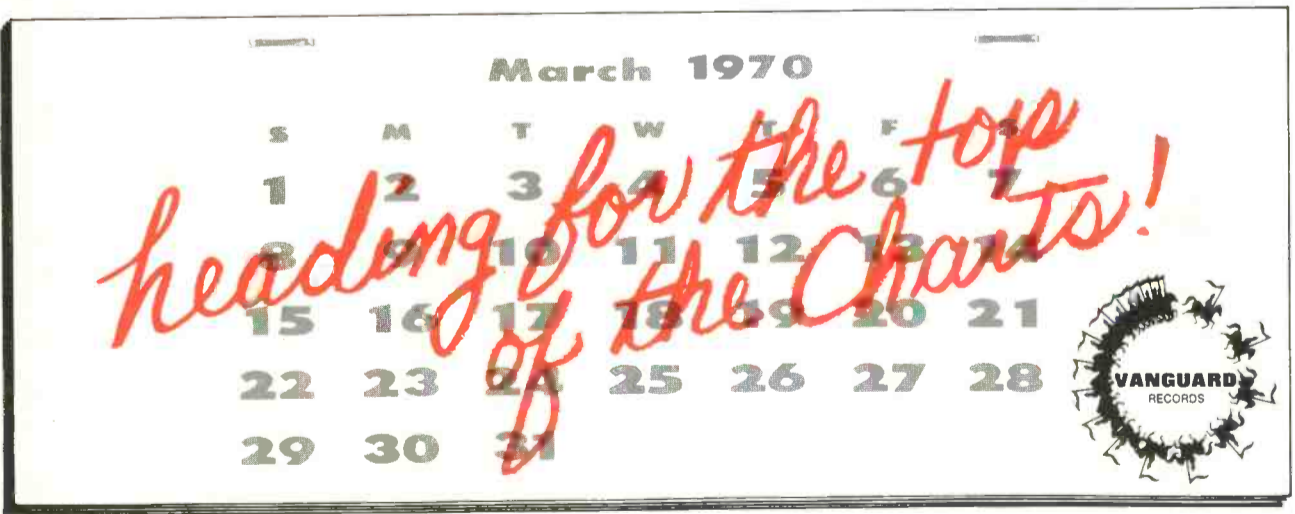 March 1970
S M T W T F S
1 2 3 4 5 6 7
8 9 10 11 12 13 14
15 16 17 18 19 20 21
22 23 24 25 26 27 28
29 30 31
heading for the top
of the Charts!
VANGUARD
RECORDS